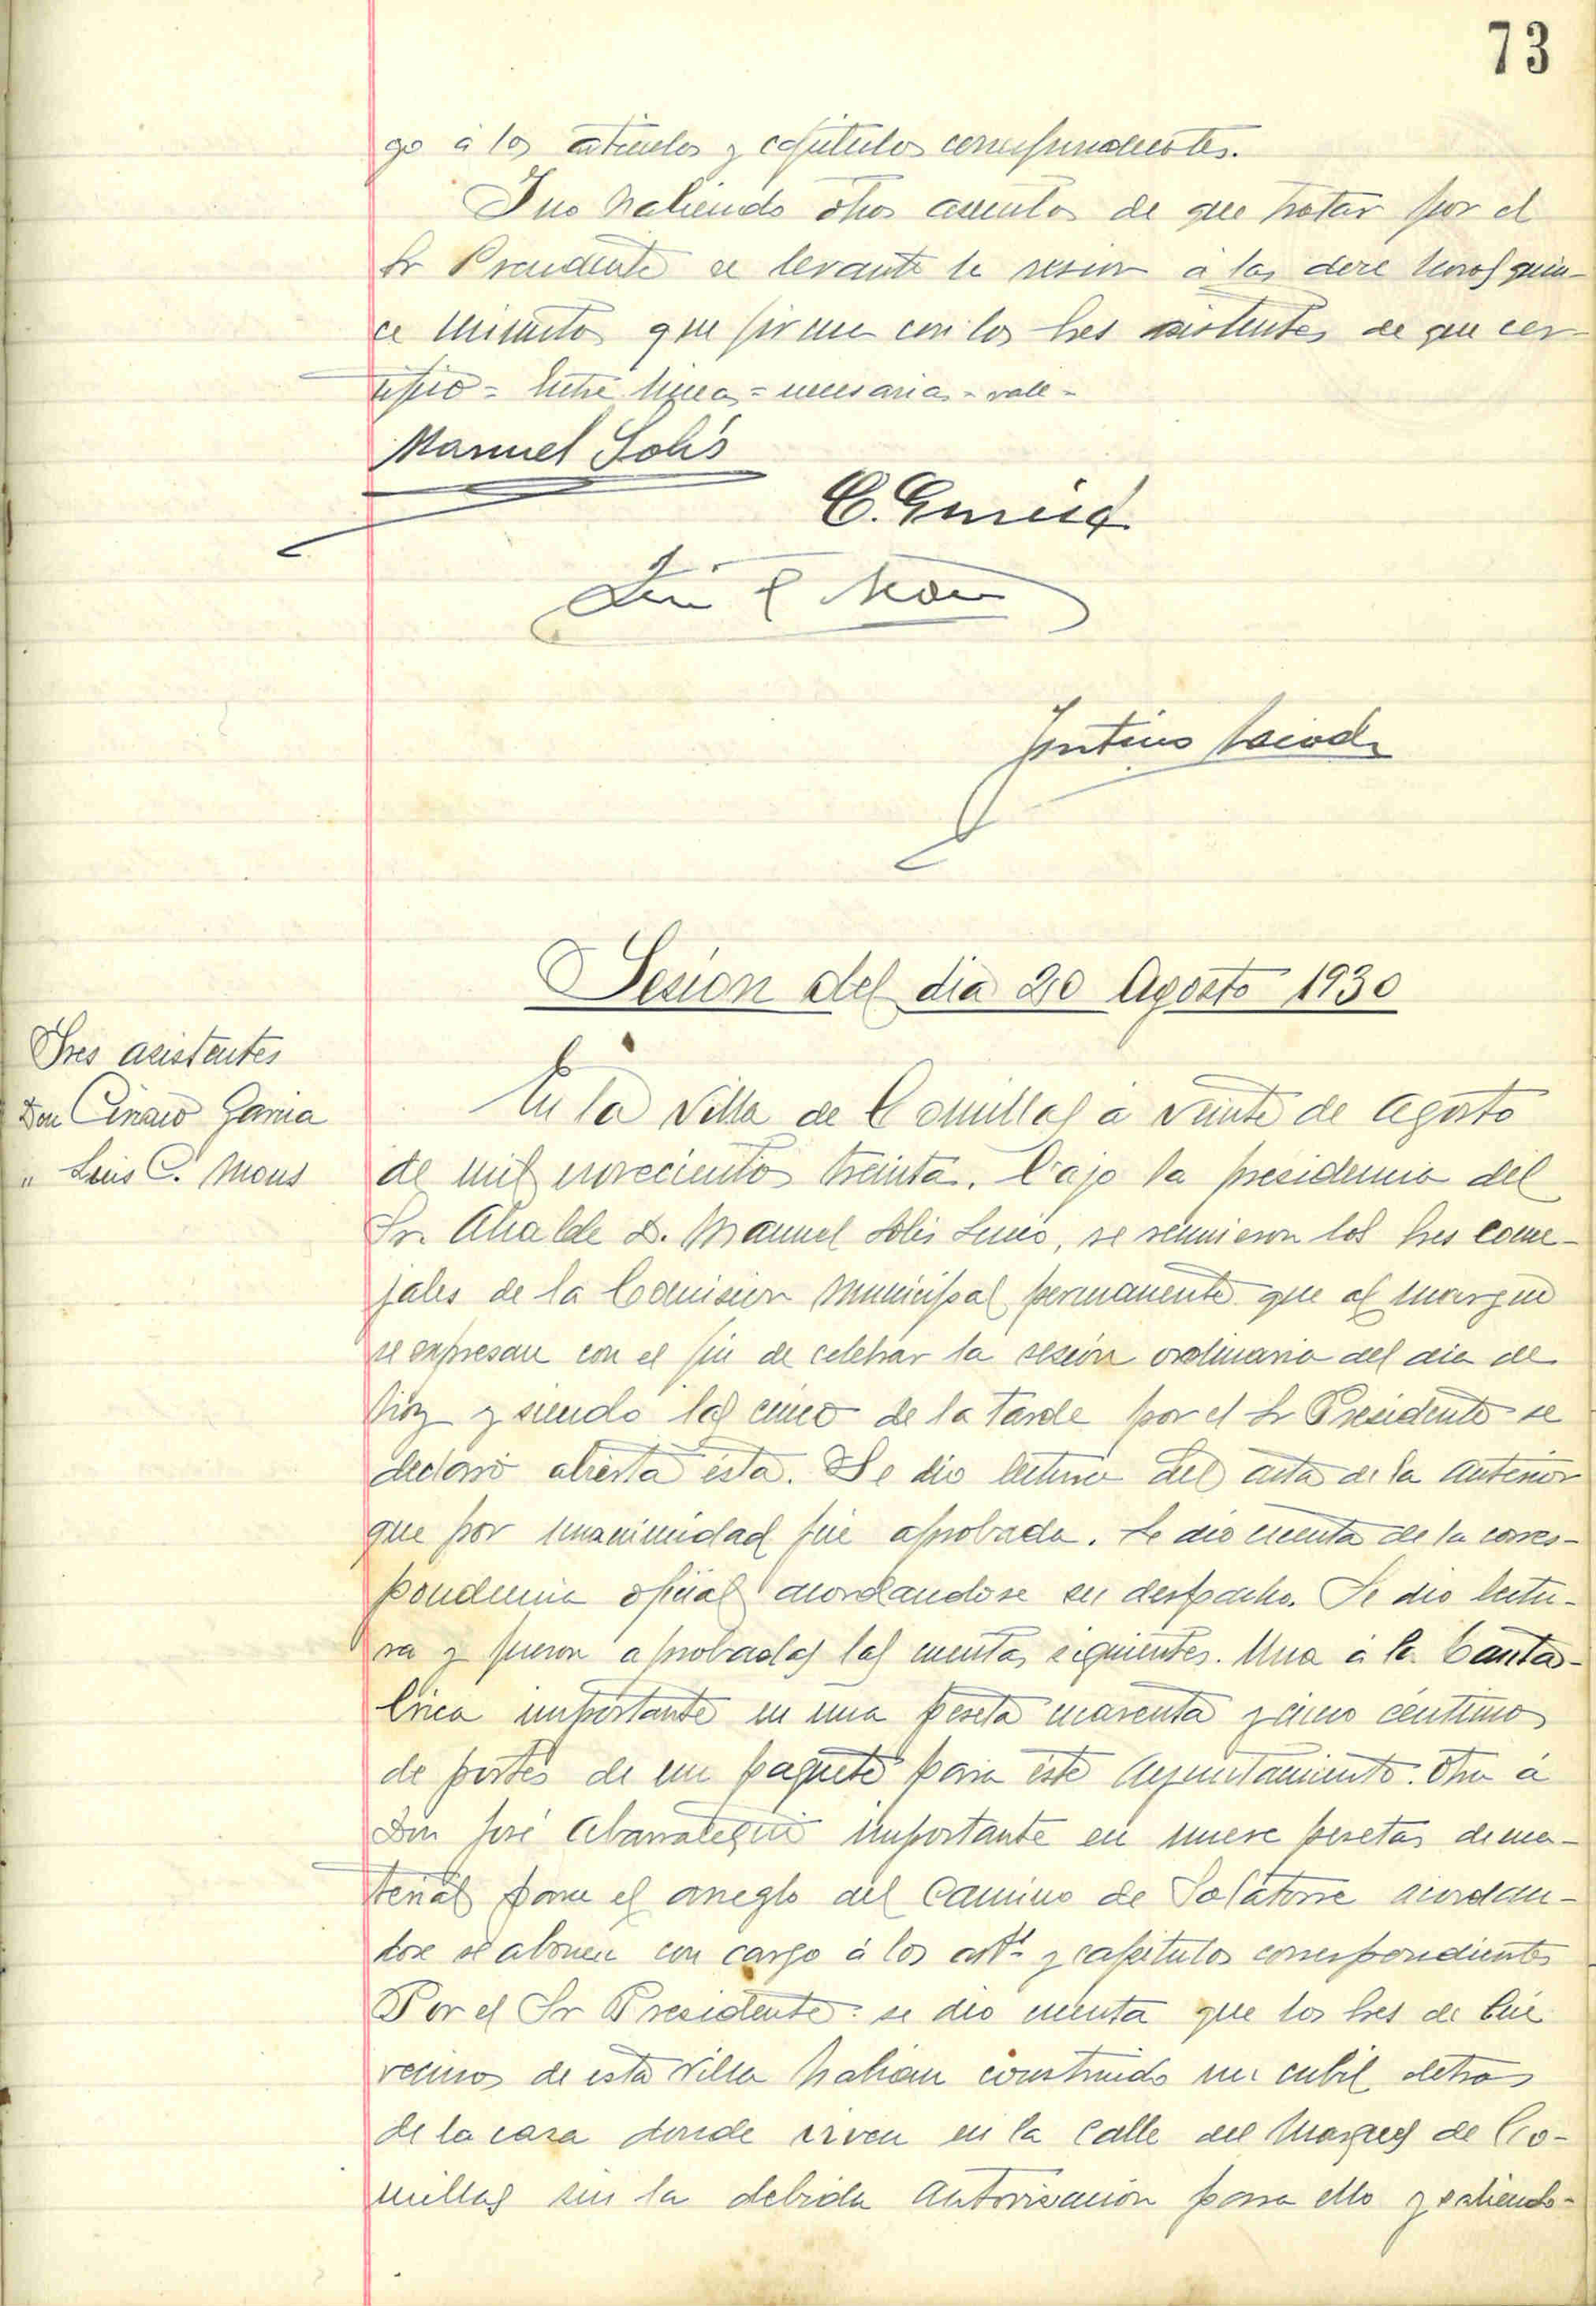 73
go á los articulos y capitulos correspondientes.
Y no habiendo otros asuntos de que tratar por el
Sr Presidente se levantó la sesion a las doce horas quin-
ce minutos que firma con los Sres asistentes de que cer-
tifico = Entre lineas = necesarias = vale =
Manuel Solís
C. García
Luis C Mons
Sesion del dia 20 Agosto 1930
Sres asistentes
Don Genaro Garcia
" Luis C. Mons
En la Villa de Comillas á veinte de Agosto
de mil novecientos treinta. Bajo la presidencia del
Sr. Alcalde D. Manuel Solis, se reunieron los Sres conce-
jales de la Comision Municipal permanente que al margen
se expresan con el fin de celebrar la sesión ordinaria del dia de
hoy y siendo las cinco de la tarde por el Sr Presidente se
declaró abierta ésta. Se dio lectura del acta de la anterior
que por unanimidad fué aprobada. Se dio cuenta de la corres-
pondencia oficial acordandose su despacho. Se dio lectu-
ra y fueron aprobadas las cuentas siguientes. Una á la Canta-
brica importante en una peseta cuarenta y cinco centimos
de portes de un paquete para éste Ayuntamiento. Otra á
Don José importante en nueve pesetas de ma-
terial para el arreglo del Camino de Solatorre acordan-
dose se abonen con cargo á los artˢ y capitulos correspondientes
Por el Sr Presidente se dio cuenta que los Sres de
vecinos de esta Villa habian construido un cubil detras
de la casa donde viven en la Calle del Marques de Co-
millas sin la debida autorisacion para ello y saliendo-